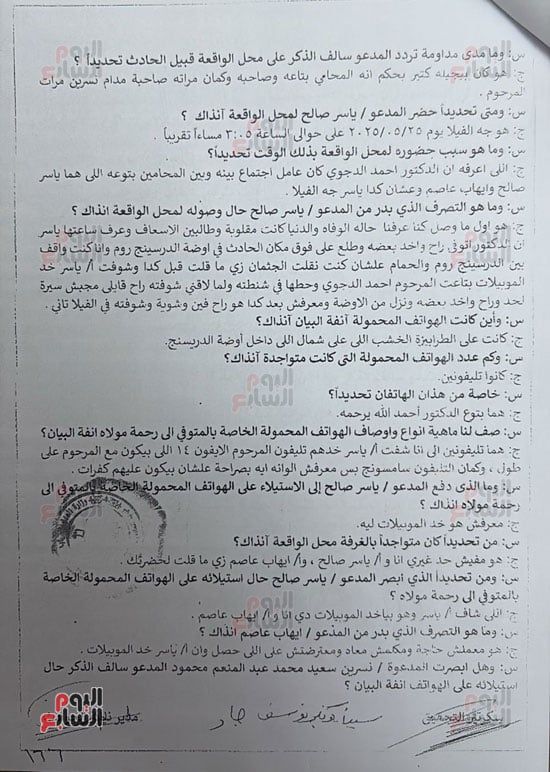 س: وما مدى مداومة تردد المدعو سالف الذكر على محل الواقعة قبيل الحادث تحديداً ؟
ج: هو كان بيجيله كتير بحكم انه المحامي بتاعه وصاحبه وكمان مراته صاحبة مدام نسرين مرات
المرحوم .
س: ومتى تحديداً حضر المدعو / ياسر صالح لمحل الواقعة آنذاك ؟
ج: هو جه الفيلا يوم ٢٠٢٥/٠٥/٢٥ على حوالى الساعة ٣:٠٥ مساءاً تقريباً .
س: وما هو سبب حضوره لمحل الواقعة بذلك الوقت تحديداً؟
ج: اللى اعرفه ان الدكتور احمد الدجوي كان عامل اجتماع بينه وبين المحامين بتوعه اللى هما ياسر
صالح وايهاب عاصم وعشان كدا ياسر جه الفيلا .
س: وما هو التصرف الذي بدر من المدعو / ياسر صالح حال وصوله لمحل الواقعة انذاك؟
ج: هو اول ما وصل كنا عرفنا حاله الوفاه والدنيا كانت مقلوبة وطالبين الاسعاف وعرف ساعتها ياسر
ان الدكتور اتوفى راح واخد بعضه وطلع على فوق مكان الحادث في اوضة الدرسينج روم وانا كنت واقف
بين الدرسينج روم والحمام علشان كنت نقلت الجثمان زي ما قلت قبل كدا وشوفت أ/ ياسر خد
الموبيلات بتاعت المرحوم احمد الدجوي وحطها في شنطته ولما لاقني شوفته راح قايلي مجبش سيرة
لحد وراح واخد بعضه ونزل من الاوضة ومعرفش بعد كدا هو راح فين وشوية وشوفته في الفيلا تاني .
س: وأين كانت الهواتف المحمولة آنفة البيان آنذاك؟
ج: كانت على الطرابيزة الخشب اللى على شمال اللى داخل أوضة الدريسنج.
س: وكم عدد الهواتف المحمولة التى كانت متواجدة آنذاك؟
ج: كانوا تليفونين.
س: خاصة من هذان الهاتفان تحديداً؟
ج: هما بتوع الدكتور أحمد الله يرحمه.
س: صف لنا ماهية انواع واوصاف الهواتف المحمولة الخاصة بالمتوفي الى رحمة مولاه انفة البيان؟
ج: هما تليفونين الى انا شفت أ/ ياسر خدهم تليفون المرحوم الايفون ١٤ اللى بيكون مع المرحوم على
طول ، وكمان التليفون سامسونج بس معرفش الوانه ايه بصراحة علشان بيكون عليهم كفرات .
س: وما الذى دفع المدعو / ياسر صالح إلى الاستيلاء على الهواتف المحمولة الخاصة بالمتوفي الى
رحمة مولاه انذاك ؟
ج: معرفش هو خد الموبيلات ليه.
س: من تحديداً كان متواجداً بالغرفة محل الواقعة آنذاك؟
ج: هو مفيش حد غيري انا و أ/ ياسر صالح ، وأ/ ايهاب عاصم زي ما قلت لحضرتك .
س: ومن تحديداً الذي أبصر المدعو / ياسر صالح حال استيلائه على الهواتف المحمولة الخاصة
بالمتوفي الى رحمة مولاه ؟
ج: اللى شاف أ/ ياسر وهو بياخد الموبيلات دي انا و أ/ ايهاب عاصم .
س: وما هو التصرف الذي بدر من المدعو / ايهاب عاصم انذاك ؟
ج: هو معملش حاجة ومكمش معاه ومعترضش على اللى حصل وان أ/ ياسر خد الموبيلات .
س: وهل ابصرت المدعوة / نسرين سعيد محمد عبد المنعم محمود المدعو سالف الذكر حال
استيلائه على الهواتف انفة البيان ؟
سكرتير التحقيق
مدير نيابة
١٦٦
اليوم السابع